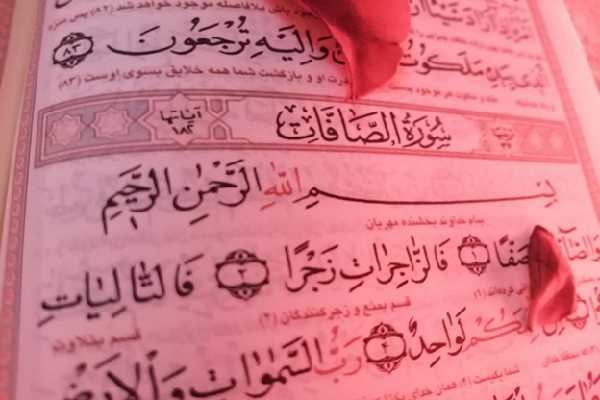 باش بلافاصله موجود خواهد شد (۸۲) پس منزه
بِيَدِهِ مَلَكُوتُ وَإِلَيْهِ تُرْجَعُونَ ﴿۸۳﴾
قدرت او و بازگشت شما همه خلایق بسوی اوست (۸۳)
سُورَةُ الصَّافَّاتِ آیاتها ۱۸۲
بِسْمِ اللَّهِ الرَّحْمٰنِ الرَّحِيمِ
بنام خداوند بخشنده مهربان
صَفًّا ﴿۱﴾ فَالزَّاجِرَاتِ زَجْرًا ﴿۲﴾ فَالتَّالِيَاتِ
(۱) قسم بمنع و زجر کنندگان (۲) قسم بتلاوت
لَوَاحِدٌ ﴿۴﴾ رَبُّ السَّمٰوَاتِ وَالْأَرْضِ
شما یکیست (۴) همان خدای